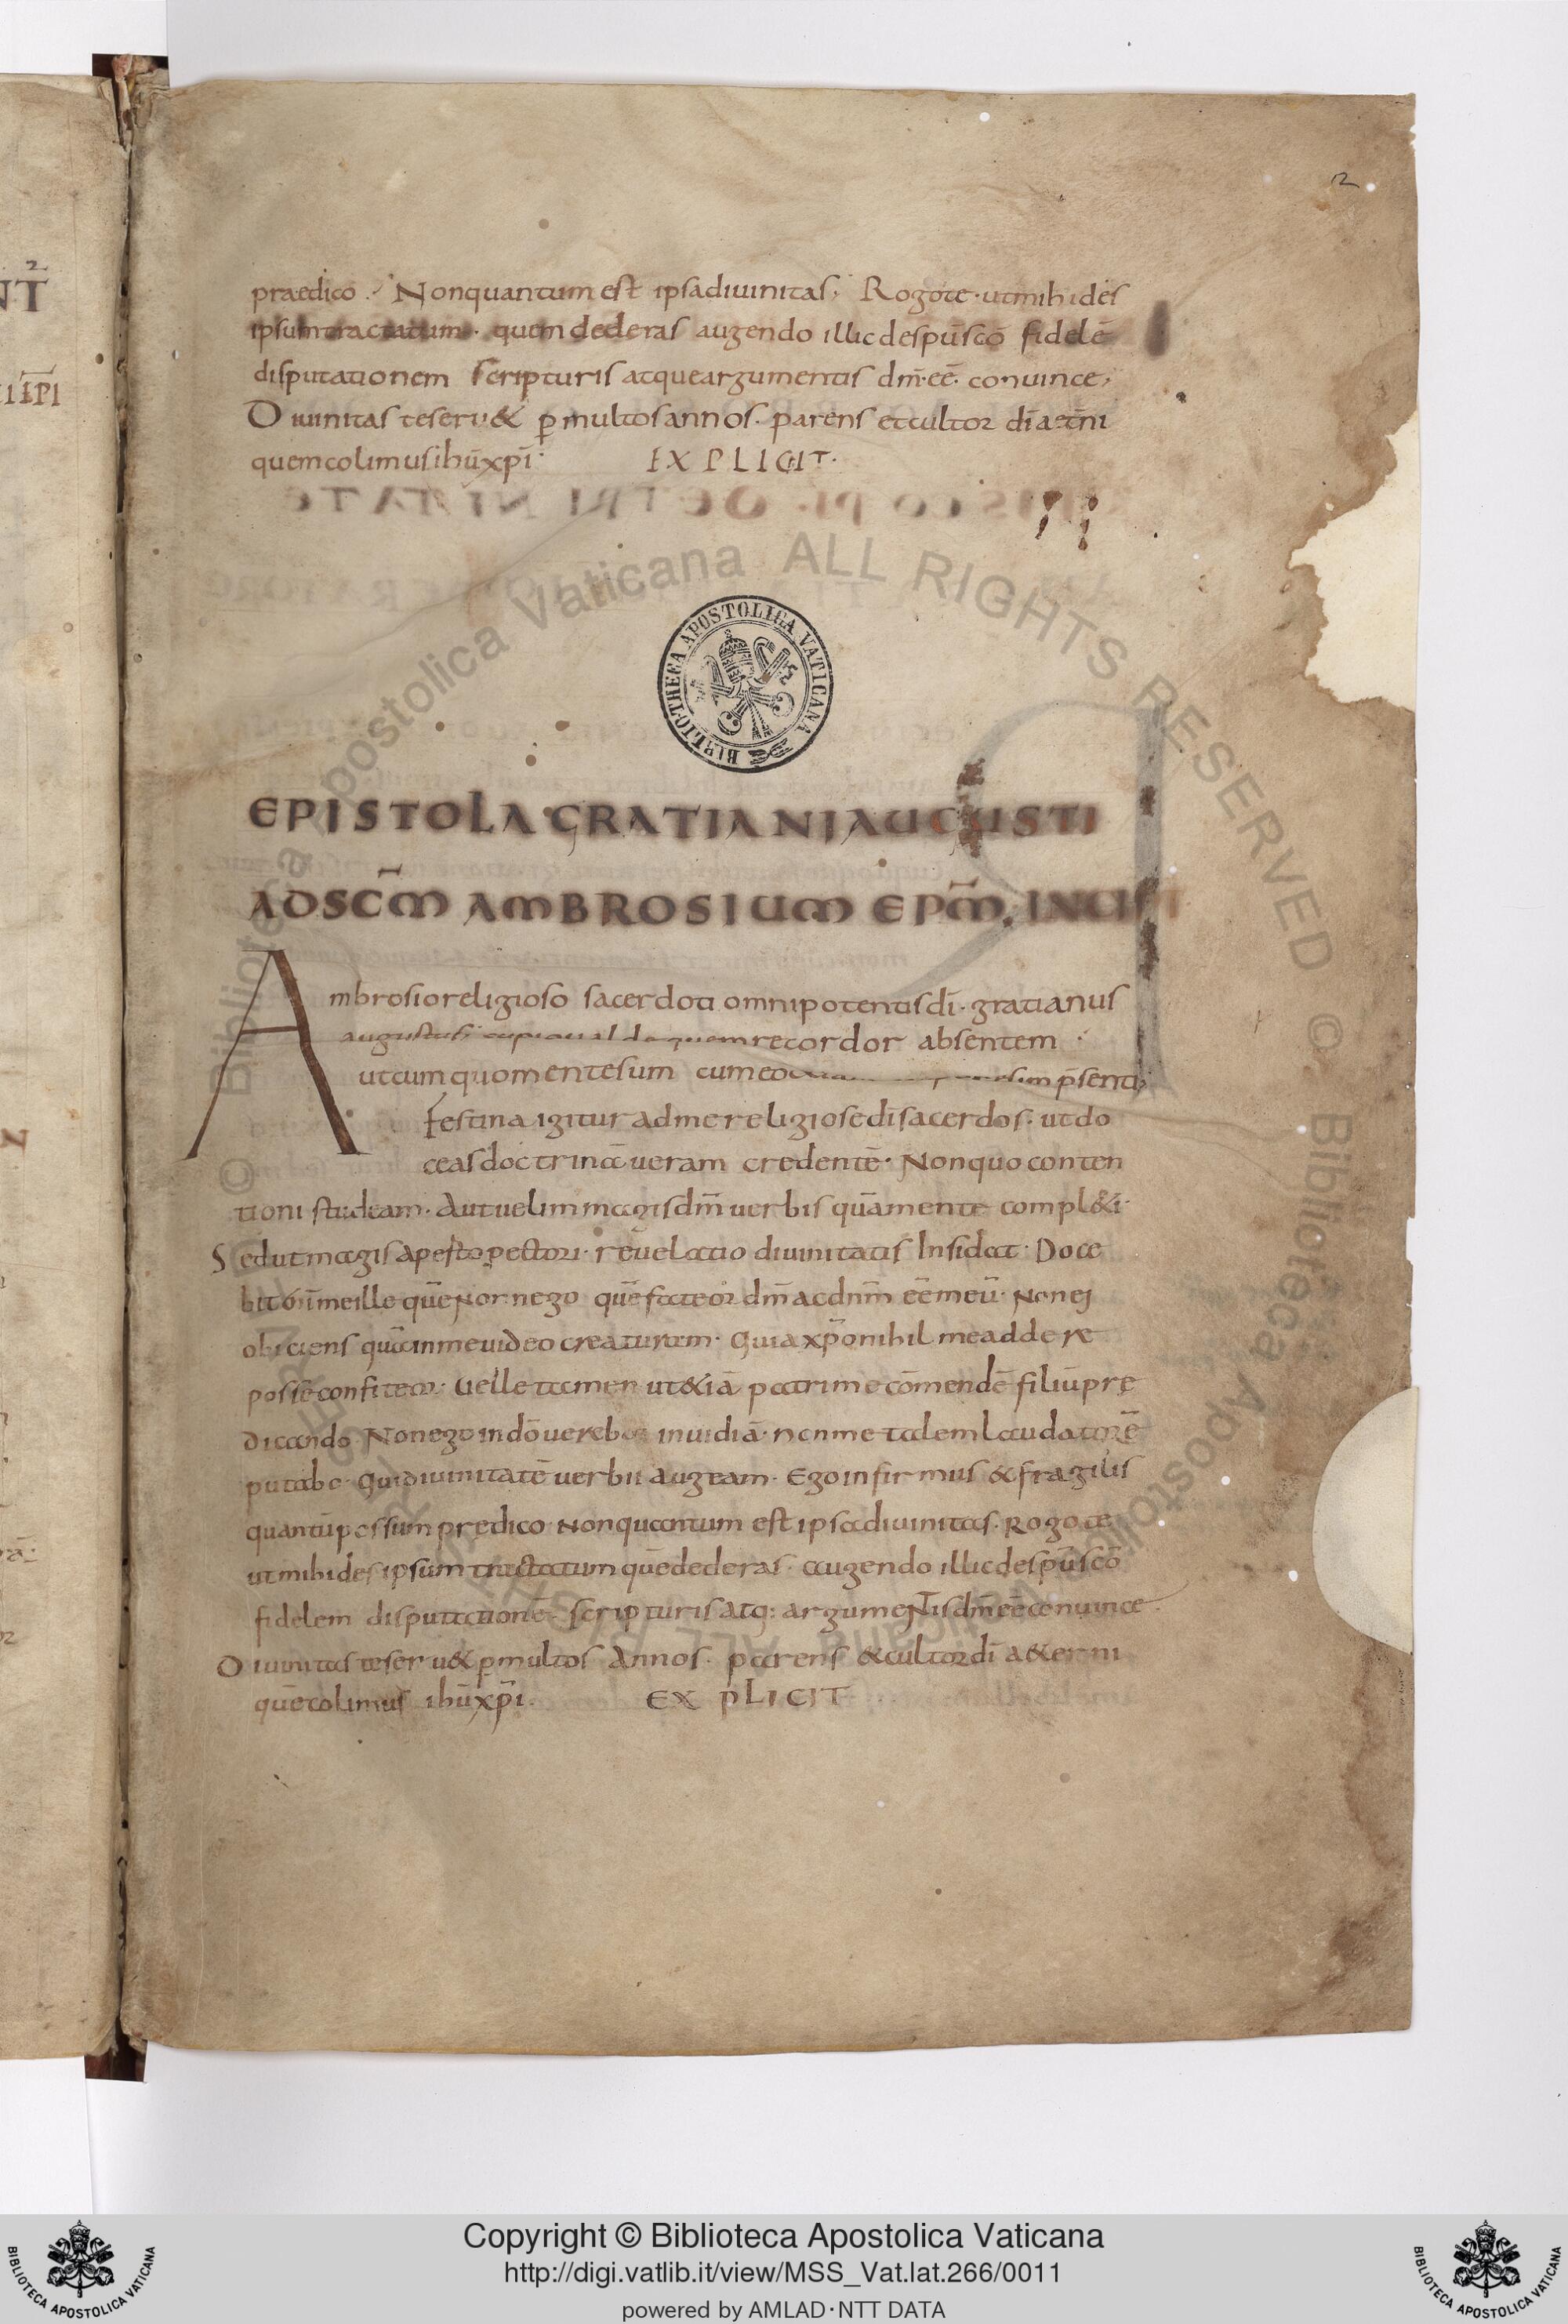 2
praedico. Nonquantum est ipsadiuinitas; Rogote·utmihides
ipsumtractatum· quemdederas augendo illicdespūscō fidelē
disputationem scripturis atqueargumentis dm̄·eē· conuince;
Diuinitas teseru& p multosannos· parens etcultor dīaet̄ni
quemcolimusihūxpī· EXPLICIT·
EPISTOLA·GRATIANIAUGUSTI
ADSC̄M AMBROSIUM EPM̄. INCIPIT
Ambrosioreligioso sacerdoti omnipotentisdī· gratianus
augustus· cupioualde quemrecordor absentem
utcumquomentesum cumeo sim p̄senti;
Festina igitur admereligiosedīsacerdos· utdo
ceasdoctrinā ueram credentē· Nonquo conten
tioni studeam· Autuelimmagisdm̄ uerbis quāmente compl&i·
Sedutmagisapertopectori· reuelatio diuinitatis Insidat· Doce
bit enīmeille quēNonnego quēfateor dm̄acdnm̄ eēmeū· Nonei
obiciens quāinmeuideo creaturam· Quiaxp̄onihil meaddere
possēconfiteor· Uelle tamen ut&iā patrime cōmendē filiūprę
dicando· Nonego indōuerebor inuidiā· nonmetalemlaudatorē
putabo· Quidiuinitatē uerbis augeam· Ego infirmus & fragilis
quantūpossumpredico Nonquantum est ipsadiuinitas. Rogote
utmihides ipsum tractatum quēdederas· augendo illicdespūscō
fidelem disputationē· scripturisatq: argumentisdm̄eēconuince.
Diuinitas teseru& pmultos Annos· parens &cultordī a&erni
quēcolimus ihūxp̄i. EXPLICIT
BIBLIOTHECA APOSTOLICA VATICANA
© Biblioteca Apostolica Vaticana ALL RIGHTS RESERVED
Copyright © Biblioteca Apostolica Vaticana
http://digi.vatlib.it/view/MSS_Vat.lat.266/0011
powered by AMLAD·NTT DATA
BIBLIOTECA APOSTOLICA VATICANA
BIBLIOTECA APOSTOLICA VATICANA